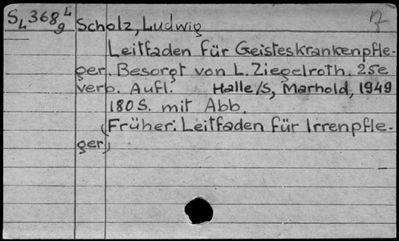 S4 368 4 Scholz, Ludwig
9
Leitfaden für Geisteskrankenpfle-
ger. Besorgt von L. Ziegelroth. 25e
verb. Aufl. Halle/S, Marhold, 1949
180 S. mit Abb.
(Früher: Leitfaden für Irrenpfle-
ger)